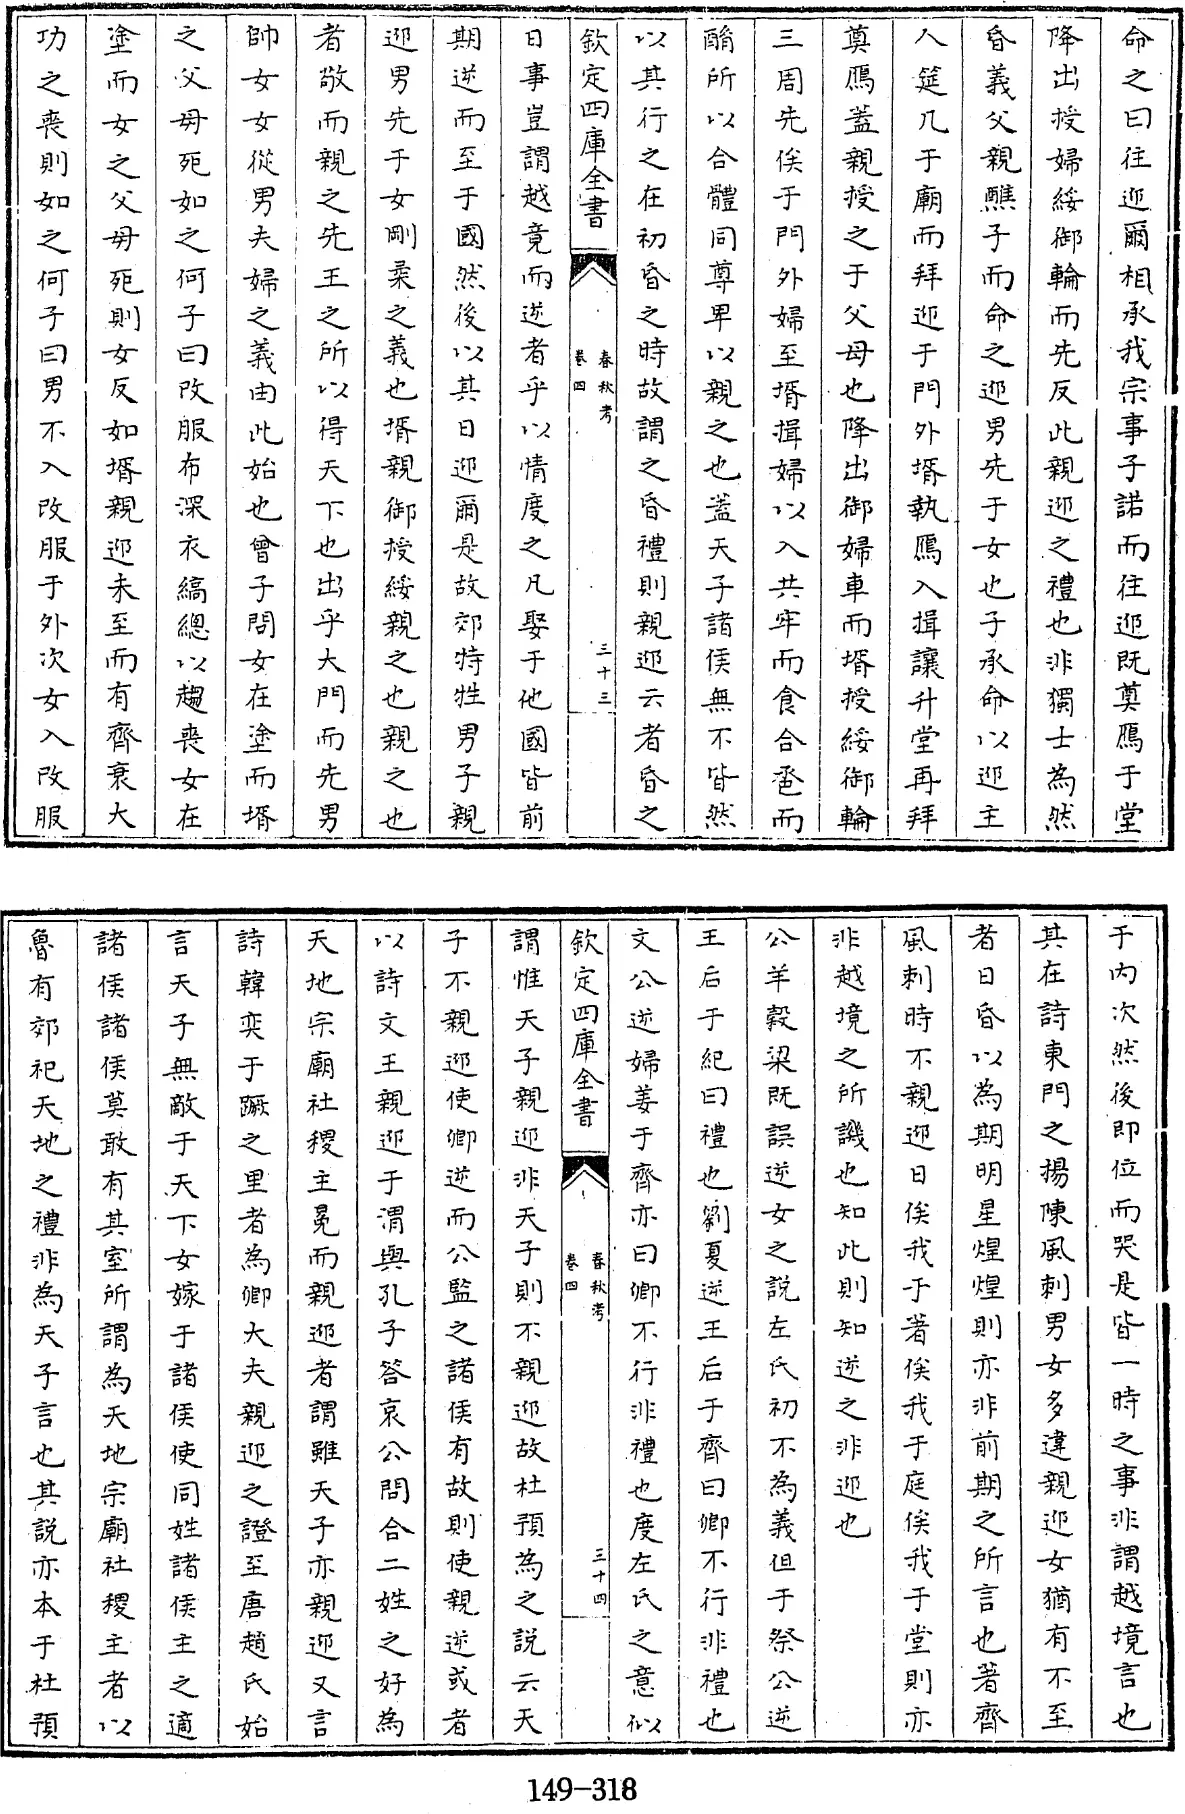 命之曰往迎爾相承我宗事子諾而往迎既奠鴈于堂
降出授婦綏御輪而先反此親迎之禮也非獨士為然
昏義父親醮子而命之迎男先于女也子承命以迎主
人筵几于廟而拜迎于門外壻執鴈入揖讓升堂再拜
奠鴈蓋親授之于父母也降出御婦車而壻授綏御輪
三周先俟于門外婦至壻揖婦以入共牢而食合巹而
酳所以合體同尊卑以親之也蓋天子諸侯無不皆然
以其行之在初昏之時故謂之昏禮則親迎云者昏之
欽定四庫全書
春秋考
卷四
三十三
日事豈謂越竟而逆者乎以情度之凡娶于他國皆前
期逆而至于國然後以其日迎爾是故郊特牲男子親
迎男先于女剛柔之義也壻親御授綏親之也親之也
者敬而親之先王之所以得天下也出乎大門而先男
帥女女從男夫婦之義由此始也曾子問女在塗而壻
之父母死如之何子曰改服布深衣縞總以趨喪女在
塗而女之父母死則女反如壻親迎未至而有齊衰大
功之喪則如之何子曰男不入改服于外次女入改服
于內次然後即位而哭是皆一時之事非謂越境言也
其在詩東門之揚陳風刺男女多違親迎女猶有不至
者曰昏以為期明星煌煌則亦非前期之所言也著齊
風刺時不親迎曰俟我于著俟我于庭俟我于堂則亦
非越境之所譏也知此則知逆之非迎也
公羊穀梁既誤逆女之說左氏初不為義但于祭公逆
王后于紀曰禮也劉夏逆王后于齊曰卿不行非禮也
文公逆婦姜于齊亦曰卿不行非禮也度左氏之意似
欽定四庫全書
春秋考
卷四
三十四
謂惟天子親迎非天子則不親迎故杜預為之說云天
子不親迎使卿逆而公監之諸侯有故則使親逆或者
以詩文王親迎于渭與孔子答哀公問合二姓之好為
天地宗廟社稷主冕而親迎者謂雖天子亦親迎又言
詩韓奕于蹶之里者為卿大夫親迎之證至唐趙氏始
言天子無敵于天下女嫁于諸侯使同姓諸侯主之適
諸侯諸侯莫敢有其室所謂為天地宗廟社稷主者以
魯有郊祀天地之禮非為天子言也其說亦本于杜預
149-318